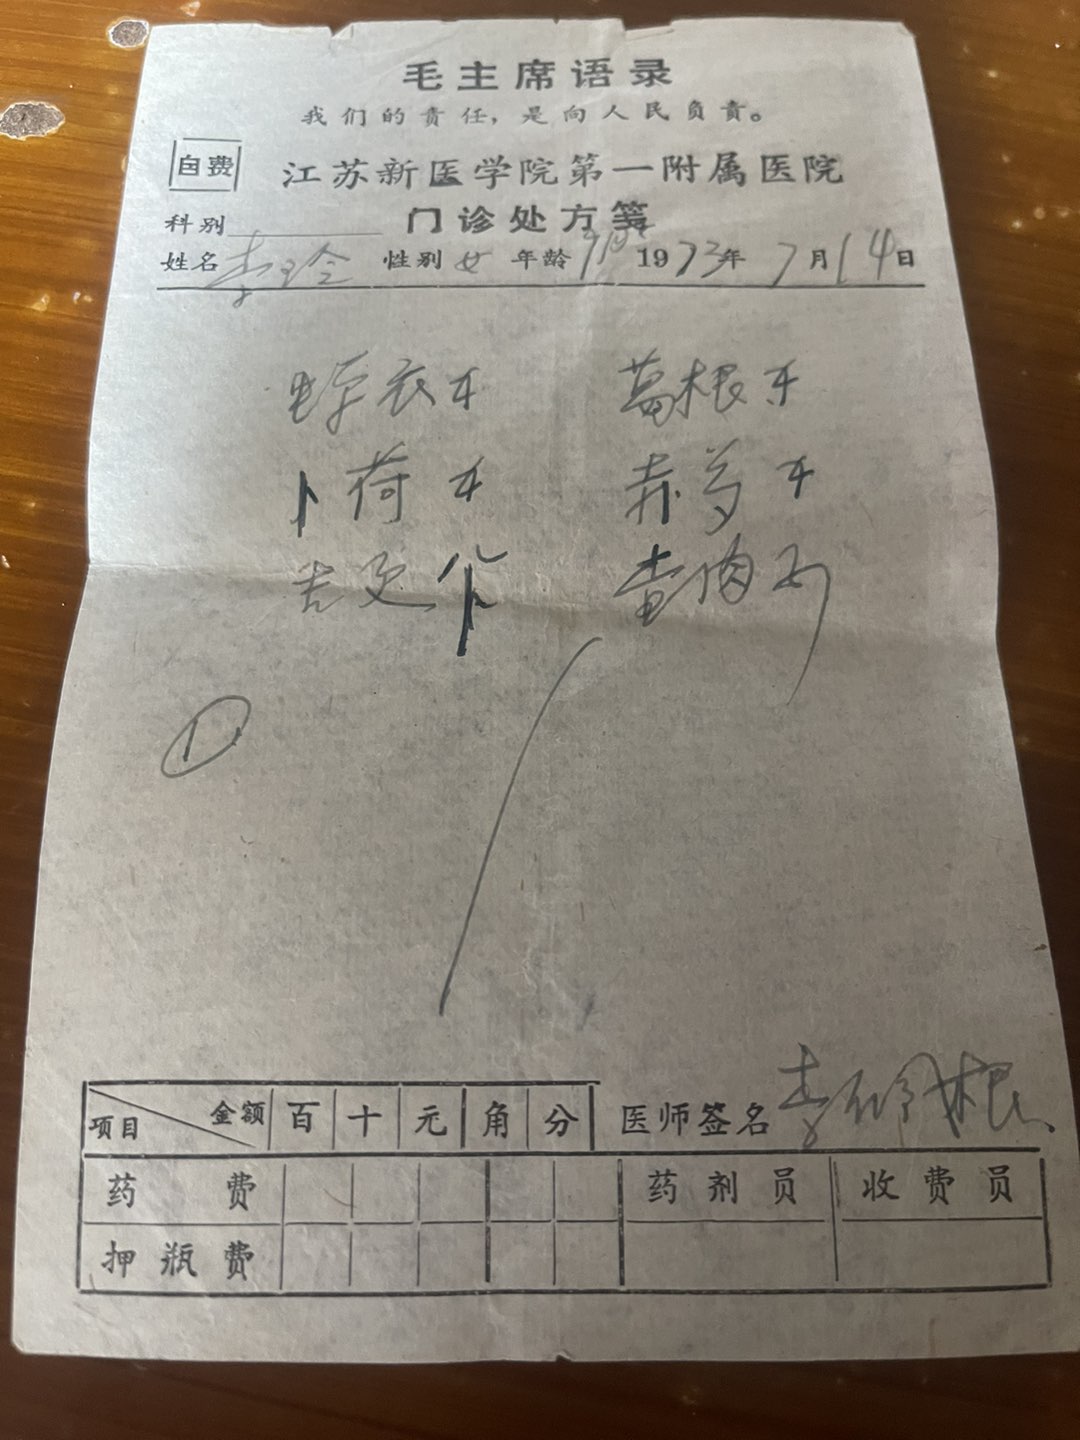 毛主席语录
我们的责任，是向人民负责。
自费 江苏新医学院第一附属医院
科别 门诊处方笺
姓名 李玲 性别 女 年龄 1973年 7月14日
蝉衣 葛根
卜荷 赤芍
吉更
①
项目 金额 百 十 元 角 分 医师签名 李
药费 药剂员 收费员
押瓶费